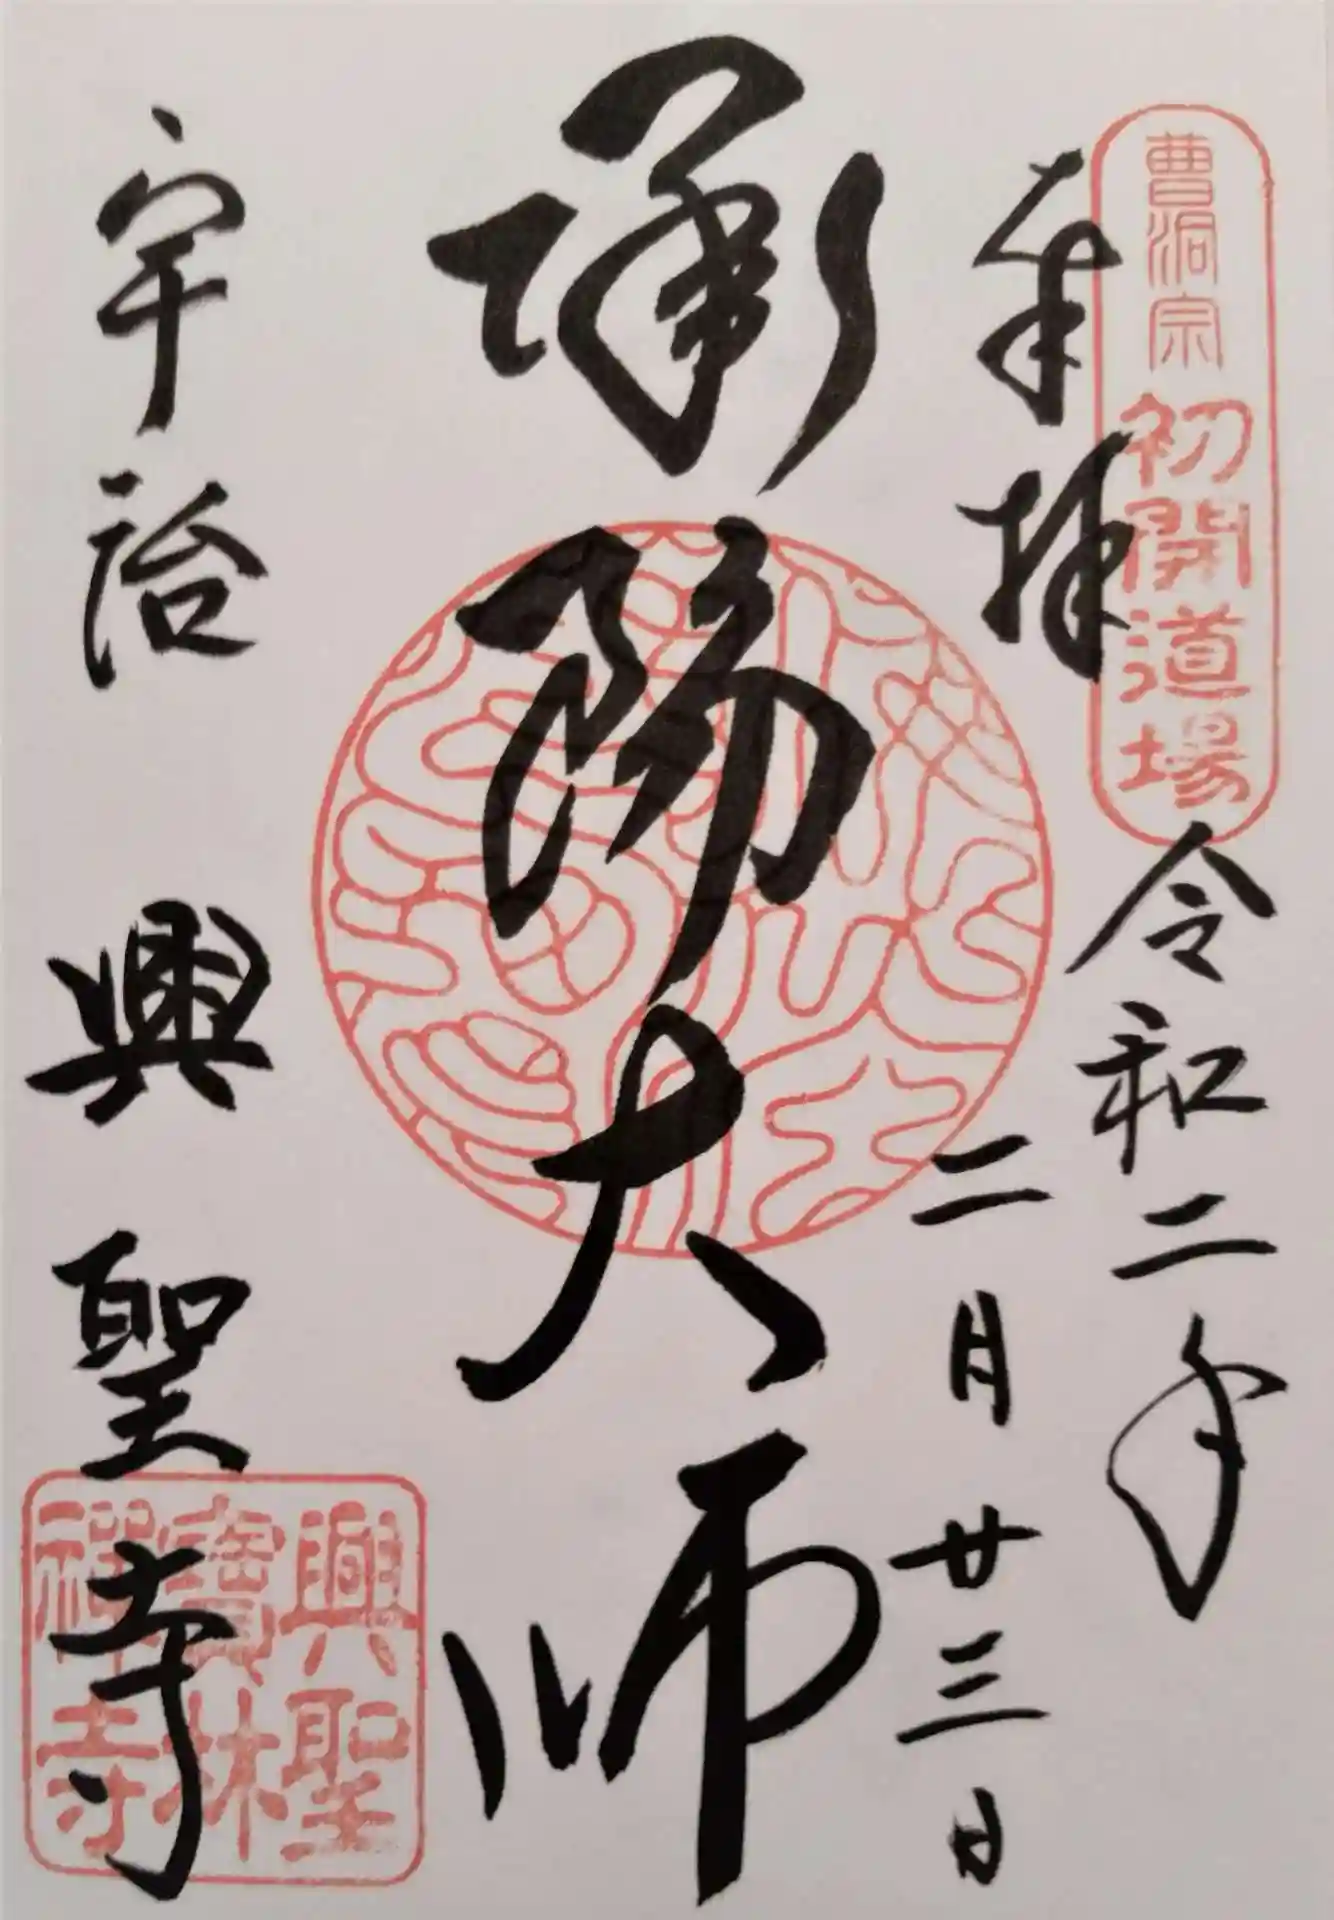 曹洞宗 初開道場
奉拝
令和二年
二月廿三日
承陽大師
宇治 興聖寺
興聖
寶林
禅寺